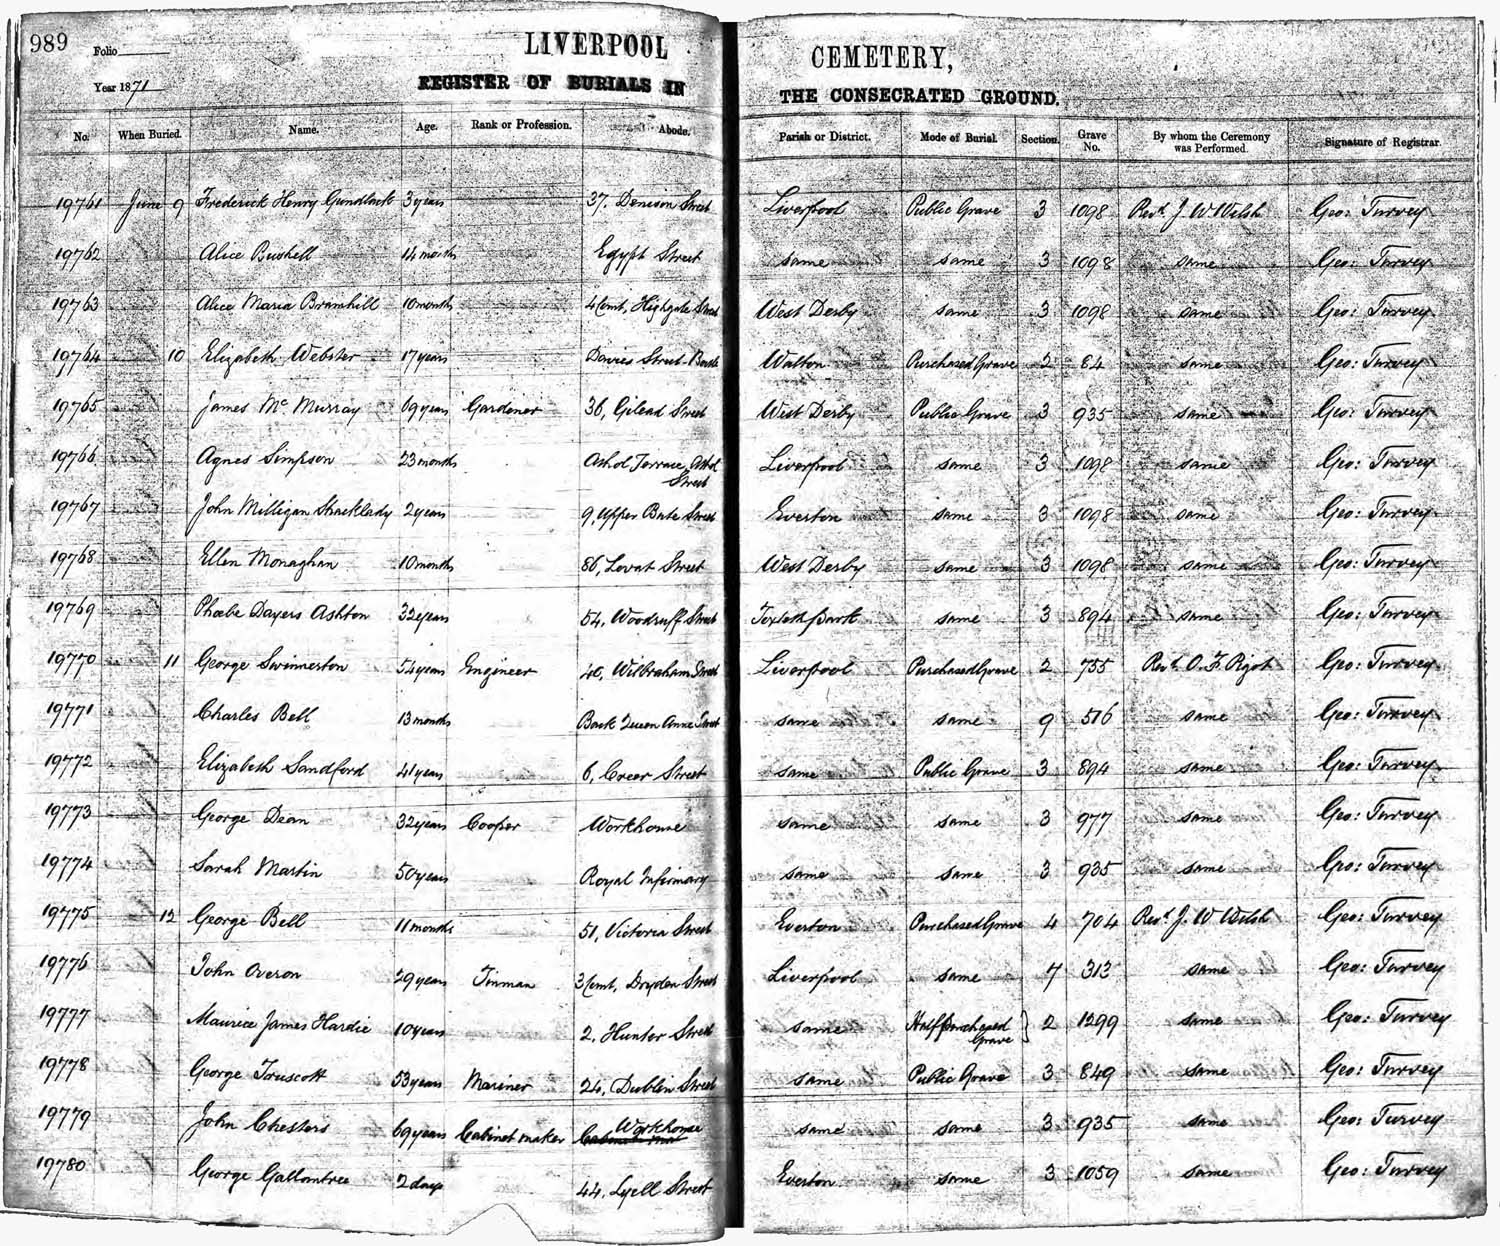 989
Folio
Year 1871
LIVERPOOL CEMETERY,
REGISTER OF BURIALS IN THE CONSECRATED GROUND.
No. When Buried. Name. Age. Rank or Profession. Abode. Parish or District. Mode of Burial. Section. Grave No. By whom the Ceremony was Performed. Signature of Registrar.
19761 June 9 Frederick Henry Gundlack 3 years 37, Denison Street Liverpool Public Grave 3 1098 Revd. J. W Welsh Geo: Turvey
19762 Alice Bushell 14 months Egypt Street same same 3 1098 same Geo: Turvey
19763 Alice Maria Bramhill 10 months 4 Court, Highgate Street West Derby same 3 1098 same Geo: Turvey
19764 10 Elizabeth Webster 17 years Davies Street Bootle Walton Purchased Grave 2 84 same Geo: Turvey
19765 James Mc Murray 69 years Gardener 36, Gilead Street West Derby Public Grave 3 935 same Geo: Turvey
19766 Agnes Simpson 23 months Athol Terrace, Athol Street Liverpool same 3 1098 same Geo: Turvey
19767 John Milligan Shacklady 2 years 9, Upper Bute Street Everton same 3 1098 same Geo: Turvey
19768 Ellen Monaghan 10 months 86, Lovat Street West Derby same 3 1098 same Geo: Turvey
19769 Phoebe Dayers Ashton 32 years 54, Woodruff Street Toxteth Park same 3 894 same Geo: Turvey
19770 11 George Swinnerton 54 years Engineer 40, Wilbraham Street Liverpool Purchased Grave 2 755 Revd. O. F. Pigot Geo: Turvey
19771 Charles Bell 13 months Back Queen Anne Street same same 9 516 same Geo: Turvey
19772 Elizabeth Sandford 41 years 6, Creer Street same Public Grave 3 894 same Geo: Turvey
19773 George Dean 32 years Cooper Workhouse same same 3 977 same Geo: Turvey
19774 Sarah Martin 50 years Royal Infirmary same same 3 935 same Geo: Turvey
19775 12 George Bell 11 months 51, Victoria Street Everton Purchased Grave 4 704 Revd. J. W Welsh Geo: Turvey
19776 John Overon 29 years Tinman 3 Court, Dryden Street Liverpool same 7 313 same Geo: Turvey
19777 Maurice James Hardie 10 years 2, Hunter Street same Half purchased Grave } 2 1299 same Geo: Turvey
19778 George Truscott 53 years Mariner 24, Dublin Street same Public Grave 3 849 same Geo: Turvey
19779 John Chesters 69 years Cabinet maker Workhouse same same 3 935 same Geo: Turvey
19780 George Gallantree 2 days 44, Lyell Street Everton same 3 1059 same Geo: Turvey